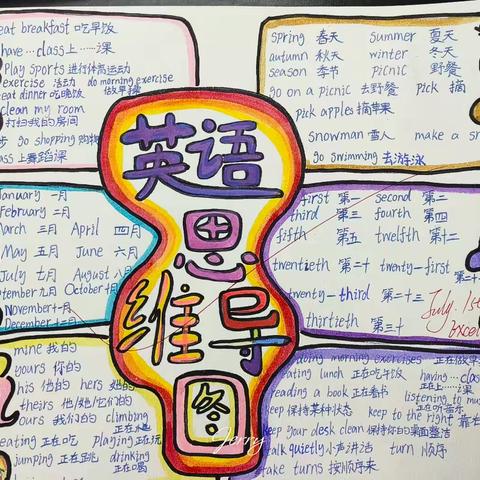 eat breakfast 吃早饭
have…class上……课
Play sports 进行体育运动
exercise 活动 do morning exercise
eat dinner 吃晚饭 做早操
clean my room
打扫我的房间
步 go shopping 购物
class 上舞蹈课
spring 春天 summer 夏天
autumn 秋天 winter 冬天
season 季节 picnic 野餐
go on a picnic 去野餐 pick 摘
pick apples 摘苹果
snowman 雪人 make a sn
go swimming 去游泳
英语
思
维导
图
January 一月
February 二月
March 三月 April 四月
May 五月 June 六月
July 七月 August 八月
September 九月 October 十月
November 十一月
December 十二月
first 第一 second 第二
third 第三 fourth 第四
fifth 第五 twelfth 第十二
twentieth 第二十 twenty-first
第二十
twenty-third 第二十三
thirtieth 第三十
July. 1st
Excel
mine 我的
yours 你的
his 他的 hers 她的
theirs 他/她/它们的
ours 我们的 climbing
eating 正在吃 playing 正在玩
jumping 正在跳 drinking
正在喝
doing morning exercises 正在做早
eating lunch 正在吃午饭 having…clas
reading a book 正在看书 正在上…课
listening to mus
keep 保持某种状态 正在听音乐
keep to the right 靠右
keep your desk clean 保持你的桌面整洁
talk quietly 小声讲话 turn 顺序
take turns 按顺序来
Jerry